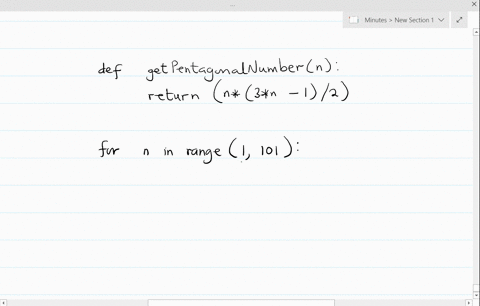 Minutes > New Section 1
def getPentagonalNumber(n):
return (n*(3*n -1)/2)
for n in range (1, 101):